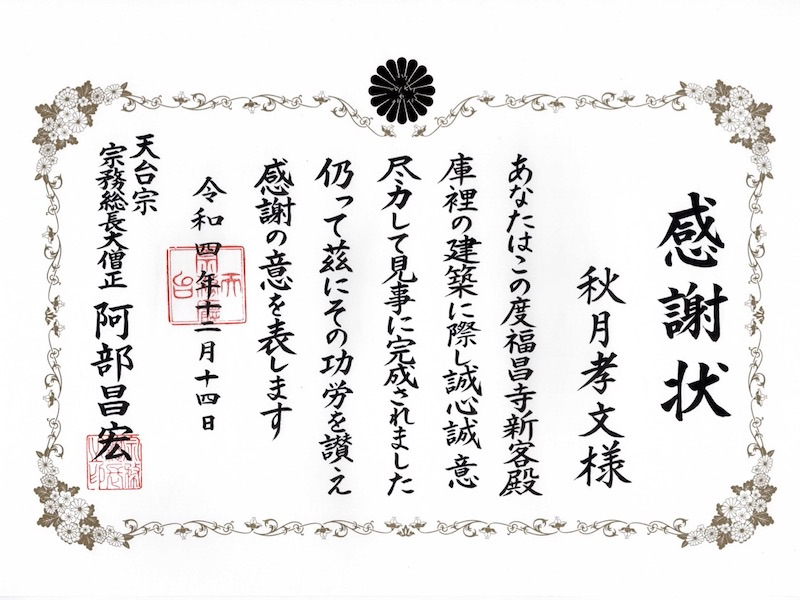 感謝状
秋月孝文様
あなたはこの度福昌寺新客殿
庫裡の建築に際し誠心誠意
尽力して見事に完成されました
仍って茲にその功労を讃え
感謝の意を表します
令和四年十二月十四日
天台宗
宗務総長大僧正 阿部昌宏